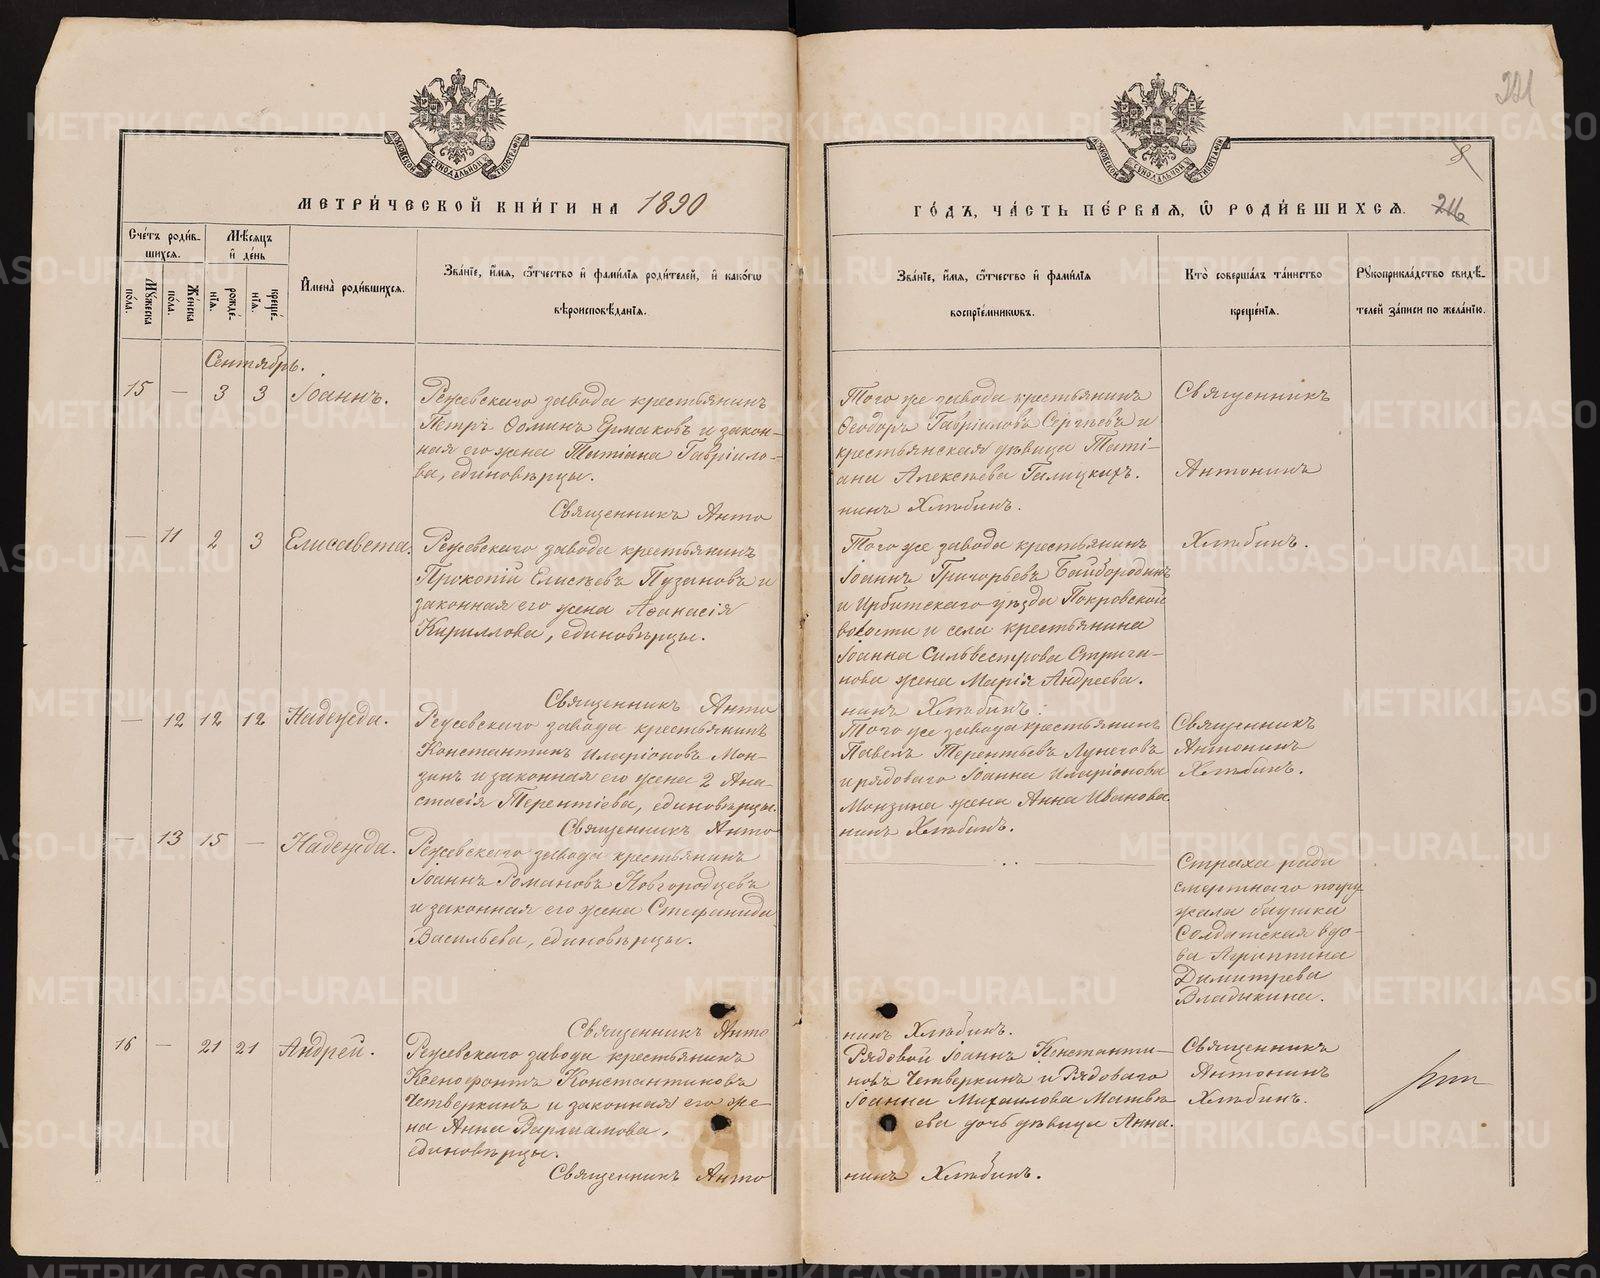 321
МЕТРИ́ЧЕСКОЙ КНИ́ГИ НА 1890
ГО́ДЪ, ЧА́СТЬ ПЕ́РВАЯ, Ѽ РОДИ́ВШИХСЯ. 216
Сче́тъ роди́в-
шихся.
Мѣ́сяцъ
и҆ де́нь
Мꙋ́жеска
по́ла.
Же́нска
по́ла.
рожде́-
нїя.
креще́-
нїя.
И҆мена̀ роди́вшихся.
Зва́нїе, и҆́мя, ѻ҆́тчество и҆ фами́лїя роди́телей, и҆ како́гѡ
вѣроисповѣ́данїя.
Зва́нїе, и҆́мя, ѻ҆́тчество и҆ фами́лїя
воспрїе́мникѡвъ.
Кто̀ соверша́лъ та́инство
креще́нїя.
Рꙋкоприкла́дство свидѣ́-
телей за́писи по жела́нїю.
Сентябрь.
15 — 3 3 Іоаннъ.
Режевскаго завода крестьянинъ
Петръ Ѳоминъ Ермаковъ и закон-
ная его жена Татіана Гавріило-
ва, единовѣрцы.
Того же завода крестьянинъ
Ѳеодоръ Гавріиловъ Сергѣевъ и
крестьянская дѣвица Таті-
ана Алексѣева Галицкихъ.
Священникъ
Антонинъ
Хлѣбинъ.
Священникъ Анто
нинъ Хлѣбинъ.
— 11 2 3 Елисавета.
Режевскаго завода крестьянинъ
Прокопій Елисѣевъ Пузановъ и
законная его жена Аѳанасія
Кириллова, единовѣрцы.
Того же завода крестьянинъ
Іоаннъ Григорьевъ Байбородинъ
и Ирбитскаго уѣзда Покровской
волости и села крестьянина
Іоанна Сильвестрова Стриги-
нова жена Марія Андреева.
Священникъ Анто
нинъ Хлѣбинъ.
— 12 12 12 Надежда.
Режевскаго завода крестьянинъ
Константинъ Иларіоновъ Мон-
зинъ и законная его жена 2 Ана-
стасія Терентіева, единовѣрцы.
Того же завода крестьянинъ
Павелъ Терентьевъ Лунеговъ
и рядоваго Іоанна Иларіонова
Монзина жена Анна Иванова
Священникъ
Антонинъ
Хлѣбинъ.
Священникъ Анто
нинъ Хлѣбинъ.
— 13 15 — Надежда.
Режевскаго завода крестьянинъ
Іоаннъ Романовъ Новгородцевъ
и законная его жена Стефанида
Васильева, единовѣрцы.
Страха ради
смертнаго погру
жала баушка
Солдатская вдо-
ва Агриппина
Димитрева
Владыкина.
Священникъ Анто
нинъ Хлѣбинъ.
16 — 21 21 Андрей.
Режевскаго завода крестьянинъ
Ксенофонтъ Константиновъ
Четверкинъ и законная его же-
на Анна Варлаамова,
единовѣрцы.
Рядовой Іоаннъ Константи-
новъ Четверкинъ и Рядоваго
Іоанна Михаилова Матвѣ-
ева дочь дѣвица Анна.
Священникъ
Антонинъ
Хлѣбинъ.
Священникъ Анто
нинъ Хлѣбинъ.
METRIKI.GASO-URAL.RU